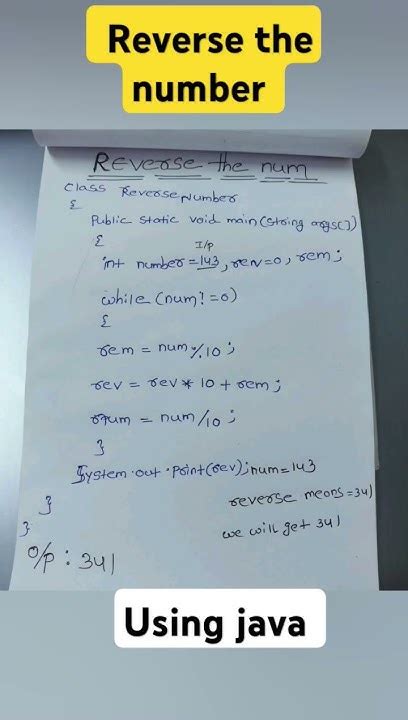 Reverse the
number
Reverse the num
class ReverseNumber
{
Public static void main(String args[])
{
I/p
int number=143, rev=0, rem;
while (num!=0)
{
rem = num%10;
rev = rev*10+rem;
num = num/10;
}
System.out.print(rev); num=143
reverse means=341
}
we will get 341
}
O/p: 341
Using java